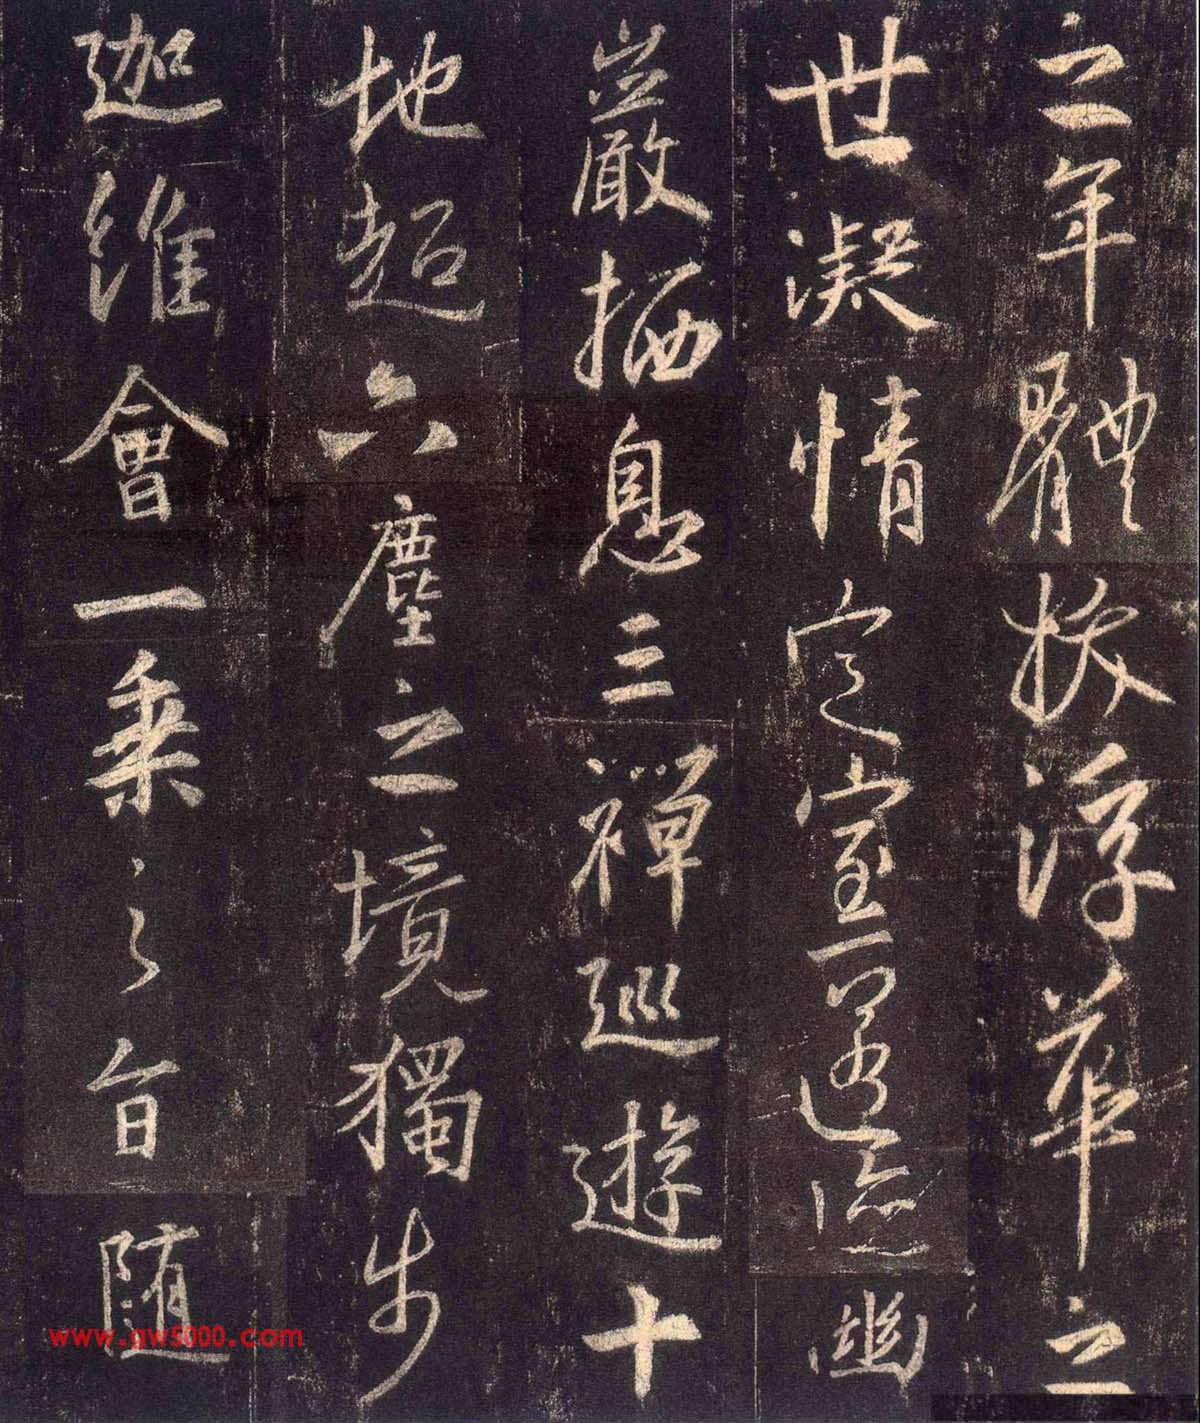 之年體拔浮華之
世凝情定室匿迹幽
巖栖息三禪巡遊十
地超六塵之境獨步
迦維會一乘之旨隨
www.gw5000.com